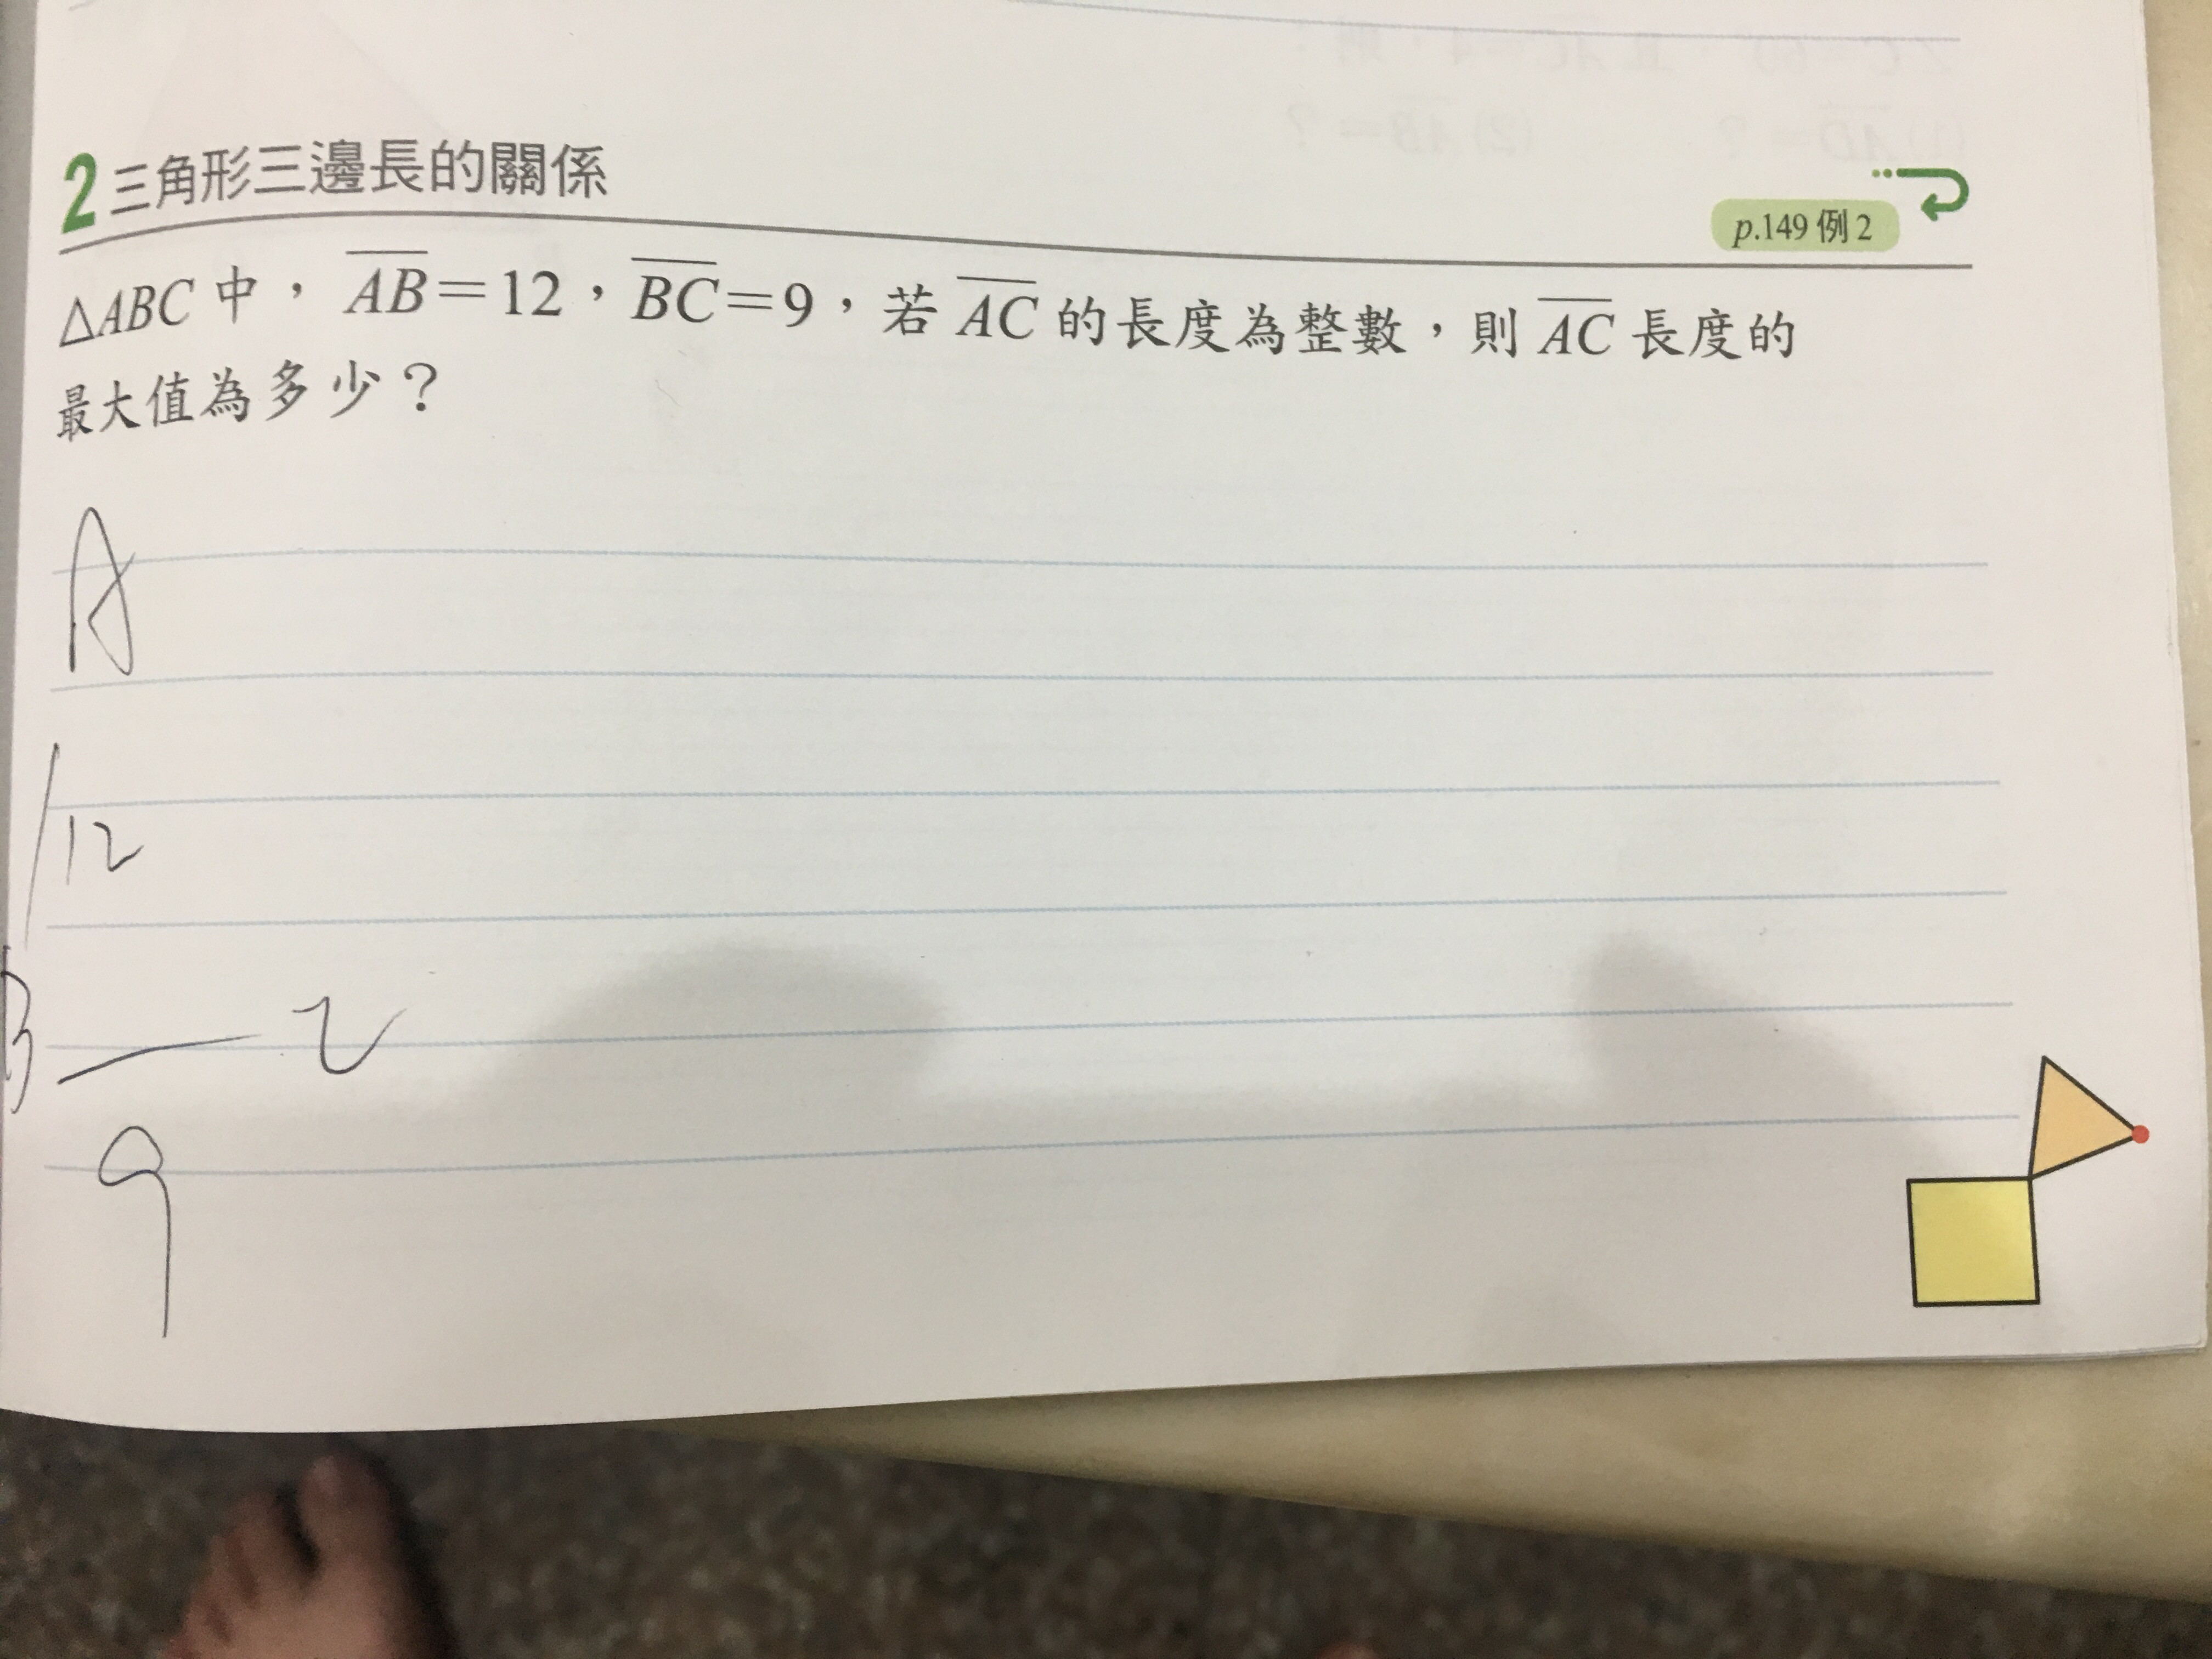 2 三角形三邊長的關係
p.149 例 2
△ABC 中，AB＝12，BC＝9，若 AC 的長度為整數，則 AC 長度的
最大值為多少？
A
12
B
9